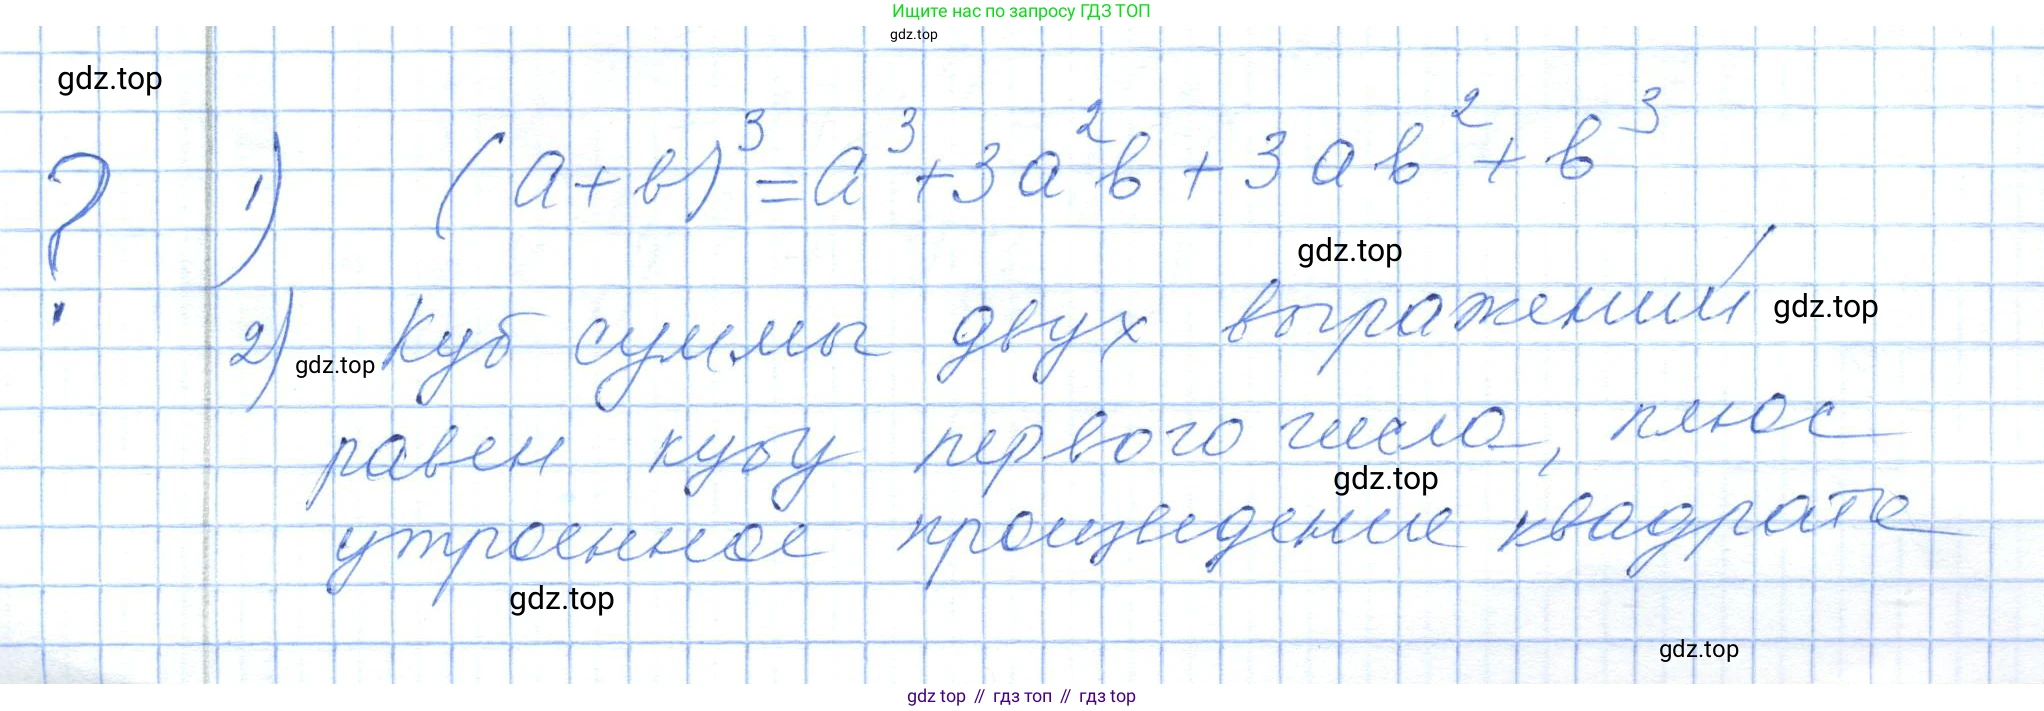 Ищите нас по запросу ГДЗ ТОП
gdz.top
gdz.top
? 1) (a+b)³=a³+3a²b+3ab²+b³
gdz.top
2) Куб суммы двух выражений
gdz.top
gdz.top
равен кубу первого числа, плюс
gdz.top
утроенное произведение квадрата
gdz.top
gdz.top
gdz top // гдз топ // гдз top